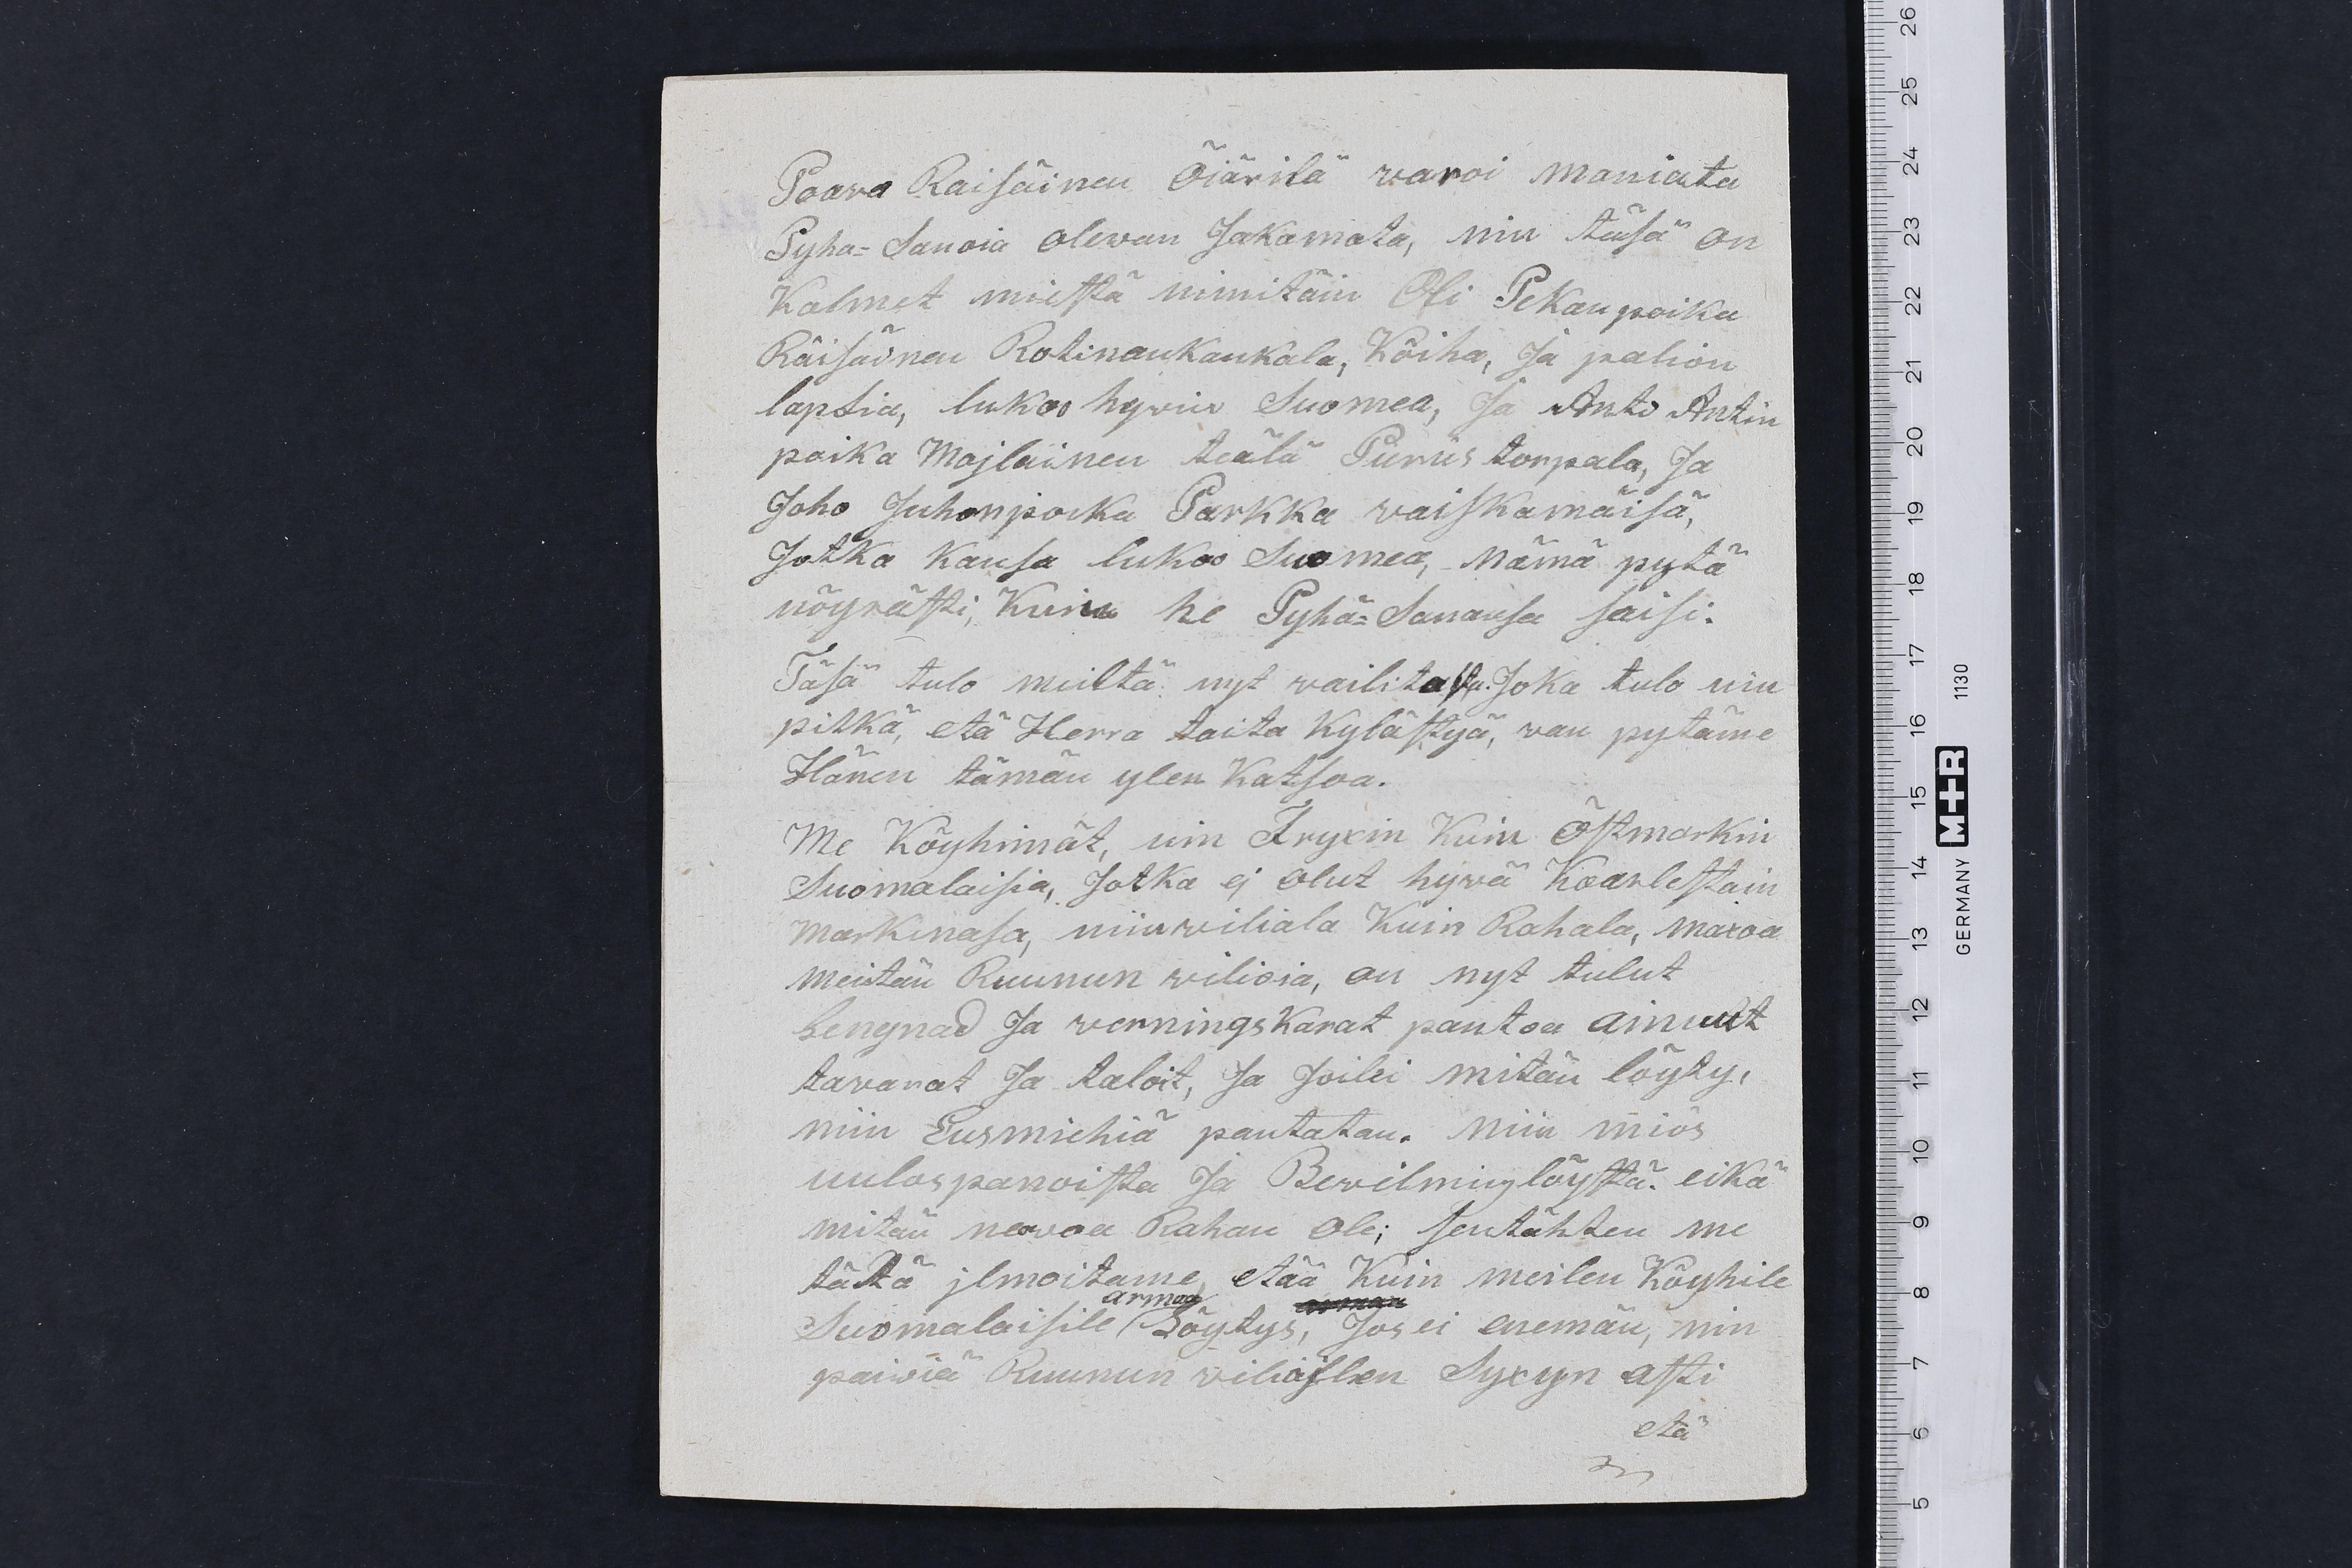 Paava Raisäinen Öiärilä varoi maniata
Pyha=Sanoia olevan Jakamata, nin täsä on
Kalmet miestä nimitäin Oli Pekan poika
Räisäinen Rotinaukaukala, Köiha, Ja palion
lapsia, lukoo hyvin Suomea, Ja Anti Antin
poika Majlainen teälä Purüs torpala, Ja
Joho Juhonpoika Parkka vaiskamäisä,
Jotka kansa lukoo Suomea, nämä pytä
nöyrästi, Kuin he Pyhä=Sanansa saisi.
Täsä tulo meiltä nyt vailitasta. Joka tulo nin
pitkä, etä Herra taita Kylästyä, van pytäme
Hänen tämän ylen Katsoa.
Me Köyhimät, nin Fryxin Kuin Östmarkin
Suomalaisia, Jotka ej olut hyvä Kaarlestain
Markinasa, niin viliala Kuin Rahala, maxoa
meitän Ruunun vilioia, on nyt tulut
Lengnad Ja verningskarat pantoa ainuut
tavarat Ja taloit, Ja Joilei mitän löyty,
niin Eusmiehiä pantatan. niin miös
uulospanoista Ja Bevilning löystä. eikä
mitän nevoa Rahan ole; sentähten me
tätä jlmoitame, etää Kuin meilen Köyhile
armoa
Suomalaisile Löytys, Jos ei enemän, nin
paiviä Ruunun viliöillen Syxyn asti
etä